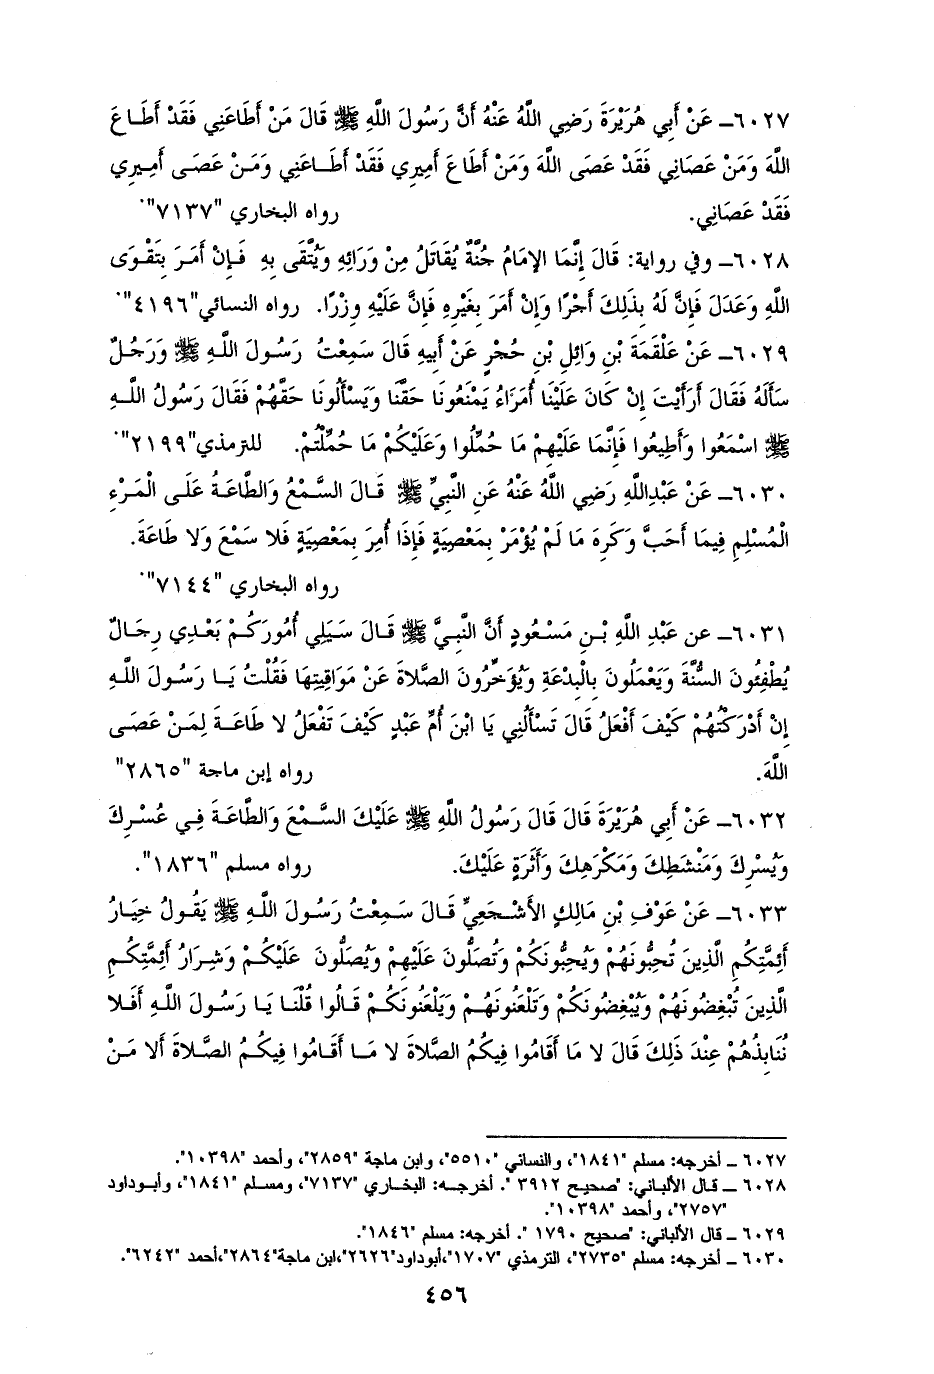 ٦٠٢٧ـ عَنْ أَبِي هُرَيْرَةَ رَضِي اللَّهُ عَنْهُ أَنَّ رَسُولَ اللَّهِ ﷺ قَالَ مَنْ أَطَاعَنِي فَقَدْ أَطَـاعَ
اللَّهَ وَمَنْ عَصَانِي فَقَدْ عَصَى اللَّهَ وَمَنْ أَطَاعَ أَمِيرِي فَقَدْ أَطَـاعَنِي وَمَـنْ عَصَـى أَمِـيرِي
فَقَدْ عَصَانِي. رواه البخاري "٧١٣٧".
٦٠٢٨ـ وفي رواية: قَالَ إِنَّمَا الإِمَامُ جُنَّةٌ يُقَاتَلُ مِنْ وَرَائِهِ وَيُتَّقَى بِهِ فَـإِنْ أَمَـرَ بِتَقْـوَى
اللَّهِ وَعَدَلَ فَإِنَّ لَهُ بِذَلِكَ أَجْرًا وَإِنْ أَمَرَ بِغَيْرِهِ فَإِنَّ عَلَيْهِ وِزْرًا. رواه النسائي"٤١٩٦".
٦٠٢٩ـ عَنْ عَلْقَمَةَ بْنِ وَائِلِ بْنِ حُجْرٍ عَنْ أَبِيهِ قَالَ سَمِعْتُ رَسُولَ اللَّـهِ ﷺ وَرَجُلٌ
سَأَلَهُ فَقَالَ أَرَأَيْتَ إِنْ كَانَ عَلَيْنَا أُمَرَاءُ يَمْنَعُونَا حَقَّنَا وَيَسْأَلُونَا حَقَّهُمْ فَقَالَ رَسُولُ اللَّـهِ
ﷺ اسْمَعُوا وَأَطِيعُوا فَإِنَّمَا عَلَيْهِمْ مَا حُمِّلُوا وَعَلَيْكُمْ مَا حُمِّلْتُمْ. للترمذي"٢١٩٩".
٦٠٣٠ـ عَنْ عَبْدِاللَّهِ رَضِي اللَّهُ عَنْهُ عَنِ النَّبِيِّ ﷺ قَـالَ السَّـمْعُ وَالطَّاعَـةُ عَلَـى الْمَـرْءِ
الْمُسْلِمِ فِيمَا أَحَبَّ وَكَرِهَ مَا لَمْ يُؤْمَرْ بِمَعْصِيَةٍ فَإِذَا أُمِرَ بِمَعْصِيَةٍ فَلا سَمْعَ وَلا طَاعَةَ.
رواه البخاري "٧١٤٤".
٦٠٣١ـ عن عَبْدِ اللَّهِ بْـنِ مَسْـعُودٍ أَنَّ النَّبِـيَّ ﷺ قَـالَ سَـيَلِي أُمُورَكُـمْ بَعْـدِي رِجَـالٌ
يُطْفِئُونَ السُّنَّةَ وَيَعْمَلُونَ بِالْبِدْعَةِ وَيُؤَخِّرُونَ الصَّلاةَ عَنْ مَوَاقِيتِهَا فَقُلْتُ يَـا رَسُـولَ اللَّـهِ
إِنْ أَدْرَكْتُهُمْ كَيْفَ أَفْعَلُ قَالَ تَسْأَلُنِي يَا ابْنَ أُمِّ عَبْدٍ كَيْفَ تَفْعَلُ لا طَاعَـةَ لِمَـنْ عَصَـى
اللَّهَ. رواه إبن ماجة "٢٨٦٥"
٦٠٣٢ـ عَنْ أَبِي هُرَيْرَةَ قَالَ قَالَ رَسُولُ اللَّهِ ﷺ عَلَيْكَ السَّـمْعَ وَالطَّاعَـةَ فِـي عُسْـرِكَ
وَيُسْرِكَ وَمَنْشَطِكَ وَمَكْرَهِكَ وَأَثَرَةٍ عَلَيْكَ. رواه مسلم "١٨٣٦".
٦٠٣٣ـ عَنْ عَوْفِ بْنِ مَالِكٍ الأَشْـجَعِيِّ قَـالَ سَـمِعْتُ رَسُـولَ اللَّـهِ ﷺ يَقُولُ خِيَارُ
أَئِمَّتِكُمِ الَّذِينَ تُحِبُّونَهُمْ وَيُحِبُّونَكُمْ وَتُصَلُّونَ عَلَيْهِمْ وَيُصَلُّونَ عَلَيْكُمْ وَشِـرَارُ أَئِمَّتِكُـمِ
الَّذِينَ تُبْغِضُونَهُمْ وَيُبْغِضُونَكُمْ وَتَلْعَنُونَهُـمْ وَيَلْعَنُونَكُـمْ قَـالُوا قُلْنَـا يَـا رَسُـولَ اللَّـهِ أَفَـلا
نُنَابِذُهُمْ عِنْدَ ذَلِكَ قَالَ لا مَا أَقَامُوا فِيكُمُ الصَّلاةَ لا مَـا أَقَـامُوا فِيكُـمُ الصَّـلاةَ أَلا مَـنْ
٦٠٢٧ ـ أخرجه: مسلم "١٨٤١"، والنسائي "٥٥١٠"، وابن ماجة "٢٨٥٩"، وأحمد "١٠٣٩٨".
٦٠٢٨ ـ قـال الألباني: "صحيح ٣٩١٢ ". أخرجـه: البخـاري "٧١٣٧"، ومسـلم "١٨٤١"، وأبـوداود
"٢٧٥٧"، وأحمد "١٠٣٩٨".
٦٠٢٩ ـ قال الألباني: "صحيح ١٧٩٠ ". أخرجه: مسلم "١٨٤٦".
٦٠٣٠ ـ أخرجه: مسلم "٢٧٣٥"، الترمذي "١٧٠٧"،أبوداود"٢٦٢٦"،ابن ماجة"٢٨٦٤"،أحمد "٦٢٤٢".
٤٥٦